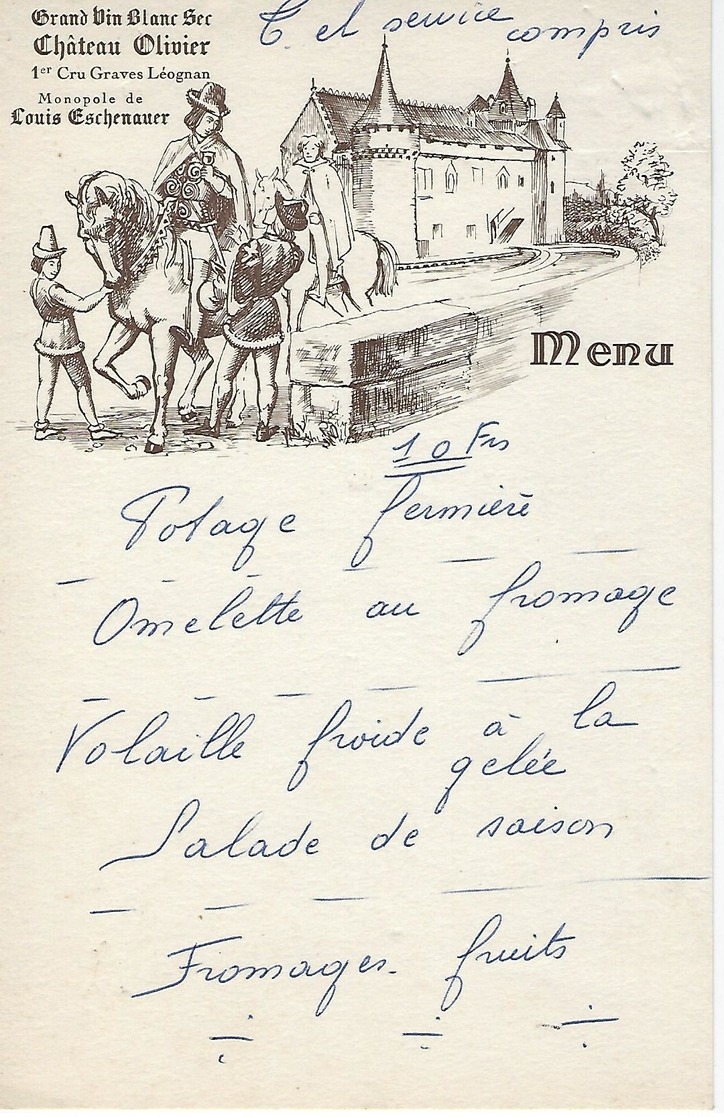 Grand Vin Blanc Sec
Château Olivier
1er Cru Graves Léognan
Monopole de
Louis Eschenauer
T et service compris
Menu
10 Frs
Potage fermière
Omelette au fromage
Volaille froide à la
gelée
Salade de saison
Fromages - fruits